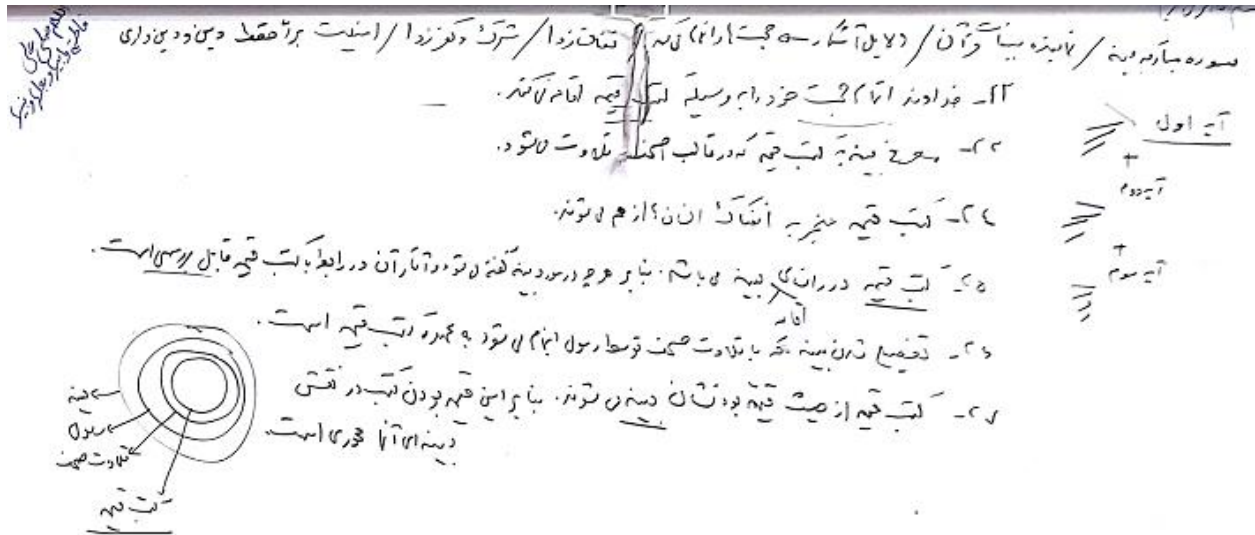 سوره مبارکه بینه / نامیده بینات قرآن / دلایل آشکار حجت را اتمام می‌کند / نفاق زدا / شرک و کفر زدا / امنیت برای حفظ دین و دین داری
آیه اول
۲۲- خداوند اتمام حجت خود را به وسیله کتب قیمه اقامه می‌کند.
+
۲۳- بینه به کتب قیمه که در قالب صحف تلاوت می‌شود.
آیه دوم
۲۴- کتب قیمه منجر به انفکاک انسان‌ها از هم می‌شوند.
+
آیه سوم
۲۵- کتب قیمه در راستای بینه می‌باشد. بنابر هر چه در مورد بینه گفته می‌شود و آثار آن در رابطه با کتب قیمه قابل بررسی است.
اقامه
۲۶- شدن بینه که با تلاوت صحف توسط رسول انجام می‌شود به عهده کتب قیمه است.
۲۷- کتب قیمه از حیث قیمه بودنشان بینه می‌شوند. بنابر این قیمه بودن کتب در نقش
بینه‌ای آنها محوری است.
بینه
رسول
تلاوت صحف
کتب قیمه